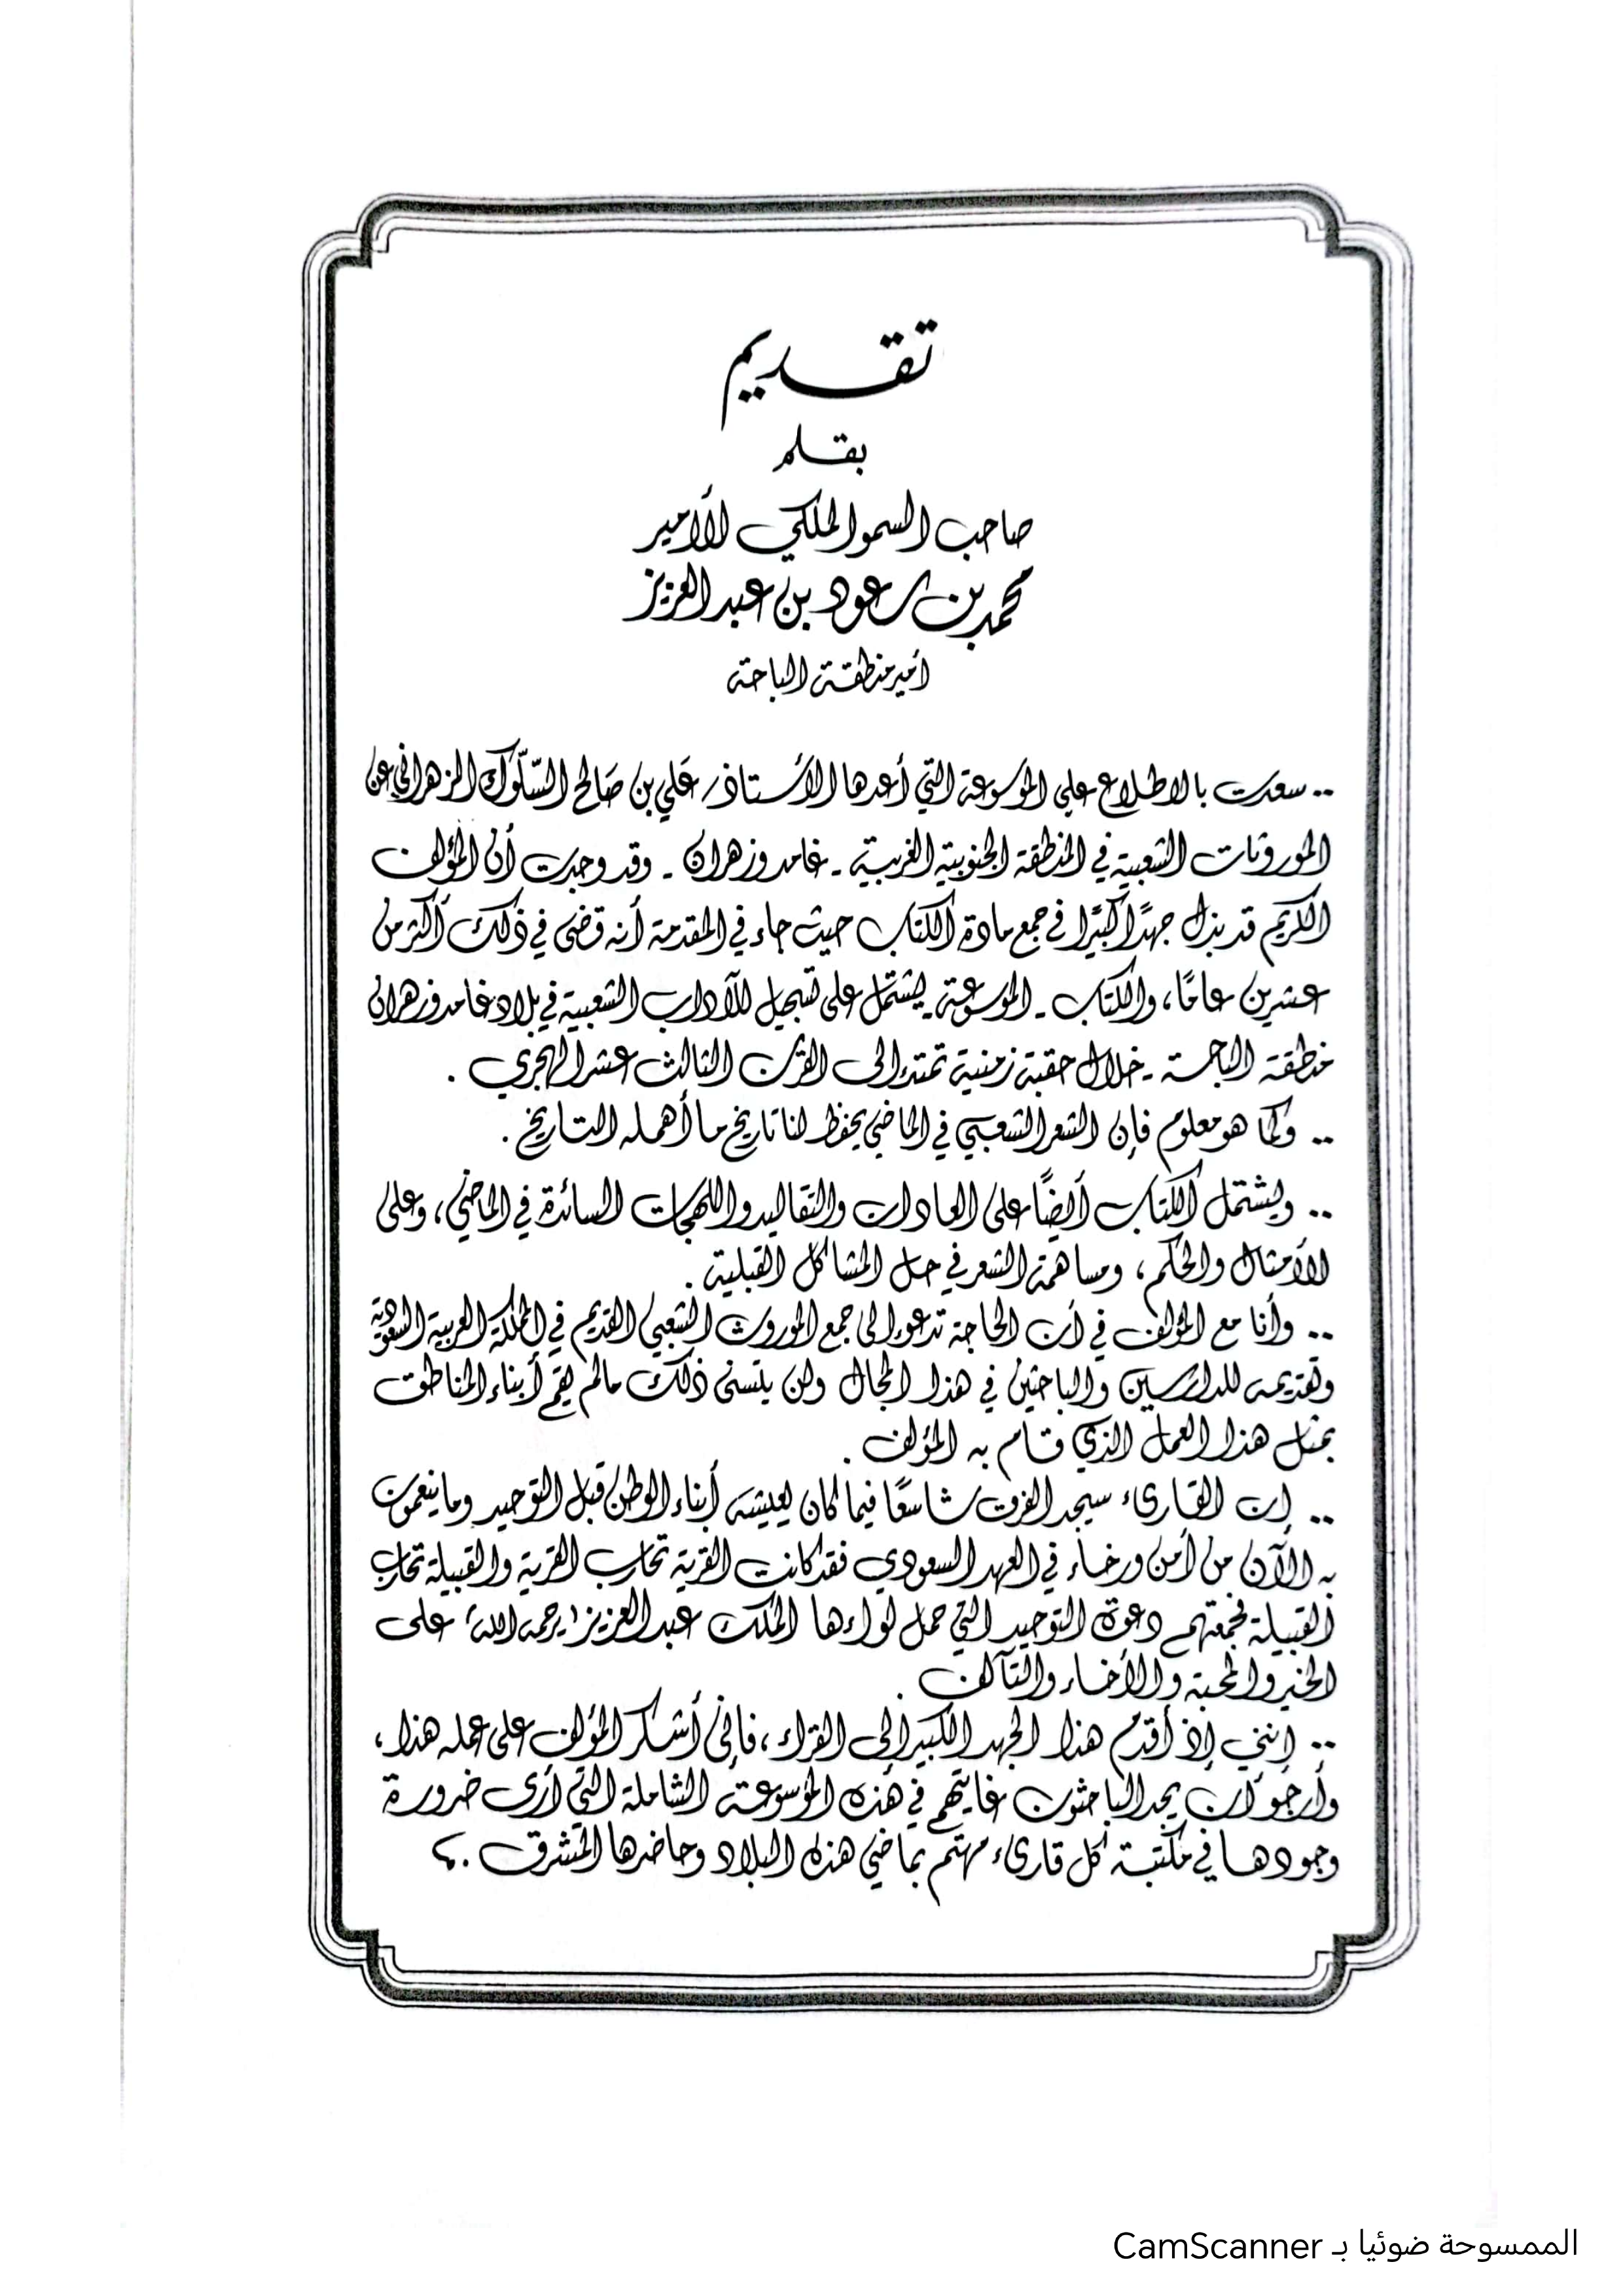 تقديم
بقلم
صاحب السمو الملكي الأمير
محمد بن سعود بن عبد العزيز
أمير منطقة الباحة
.. سعدت بالاطلاع على الموسوعة التي أعدها الأستاذ / علي بن صالح السّلوك الزهراني عن
الموروثات الشعبية في المنطقة الجنوبية الغربية - غامد وزهران - وقد وجدت أن المؤلف
الكريم قد بذل جهدًا كبيرًا في جمع مادة الكتاب حيث جاء في المقدمة أنه قضى في ذلك أكثر من
عشرين عامًا، والكتاب - الموسوعة - يشتمل على تسجيل للآداب الشعبية في بلاد غامد وزهران
منطقة الباحة - خلال حقبة زمنية تمتد إلى القرن الثالث عشر الهجري .
.. وكما هو معلوم فإن الشعر الشعبي في الماضي يحفظ لنا تاريخ ما أهمله التاريخ .
.. ويشتمل الكتاب أيضًا على العادات والتقاليد واللهجات السائدة في الماضي، وعلى
الأمثال والحكم، ومساهمة الشعر في حل المشاكل القبلية .
.. وأنا مع المؤلف في أن الحاجة تدعو إلى جمع الموروث الشعبي القديم في المملكة العربية السعودية
وتقديمه للدارسين والباحثين في هذا المجال ولن يتسنى ذلك مالم يقم أبناء المناطق
بمثل هذا العمل الذي قام به المؤلف .
.. إن القارىء سيجد الفرق شاسعًا فيما كان يعيشه أبناء الوطن قبل التوحيد وما ينعمون
به الآن من أمن ورخاء في العهد السعودي فقد كانت القرية تحارب القرية والقبيلة تحارب
القبيلة فجمعتهم دعوة التوحيد التي حمل لواءها الملك عبد العزيز "يرحمه الله" على
الخير والمحبة والأخاء والتآلف .
.. إنني إذ أقدم هذا الجهد الكبير إلى القراء، فإني أشكر المؤلف على عمله هذا،
وأرجو أن يجد الباحثون غايتهم في هذه الموسوعة الشاملة التي أرى ضرورة
وجودها في مكتبة كل قارىء مهتم بماضي هذه البلاد وحاضرها المشرق .؟
الممسوحة ضوئيا بـ CamScanner